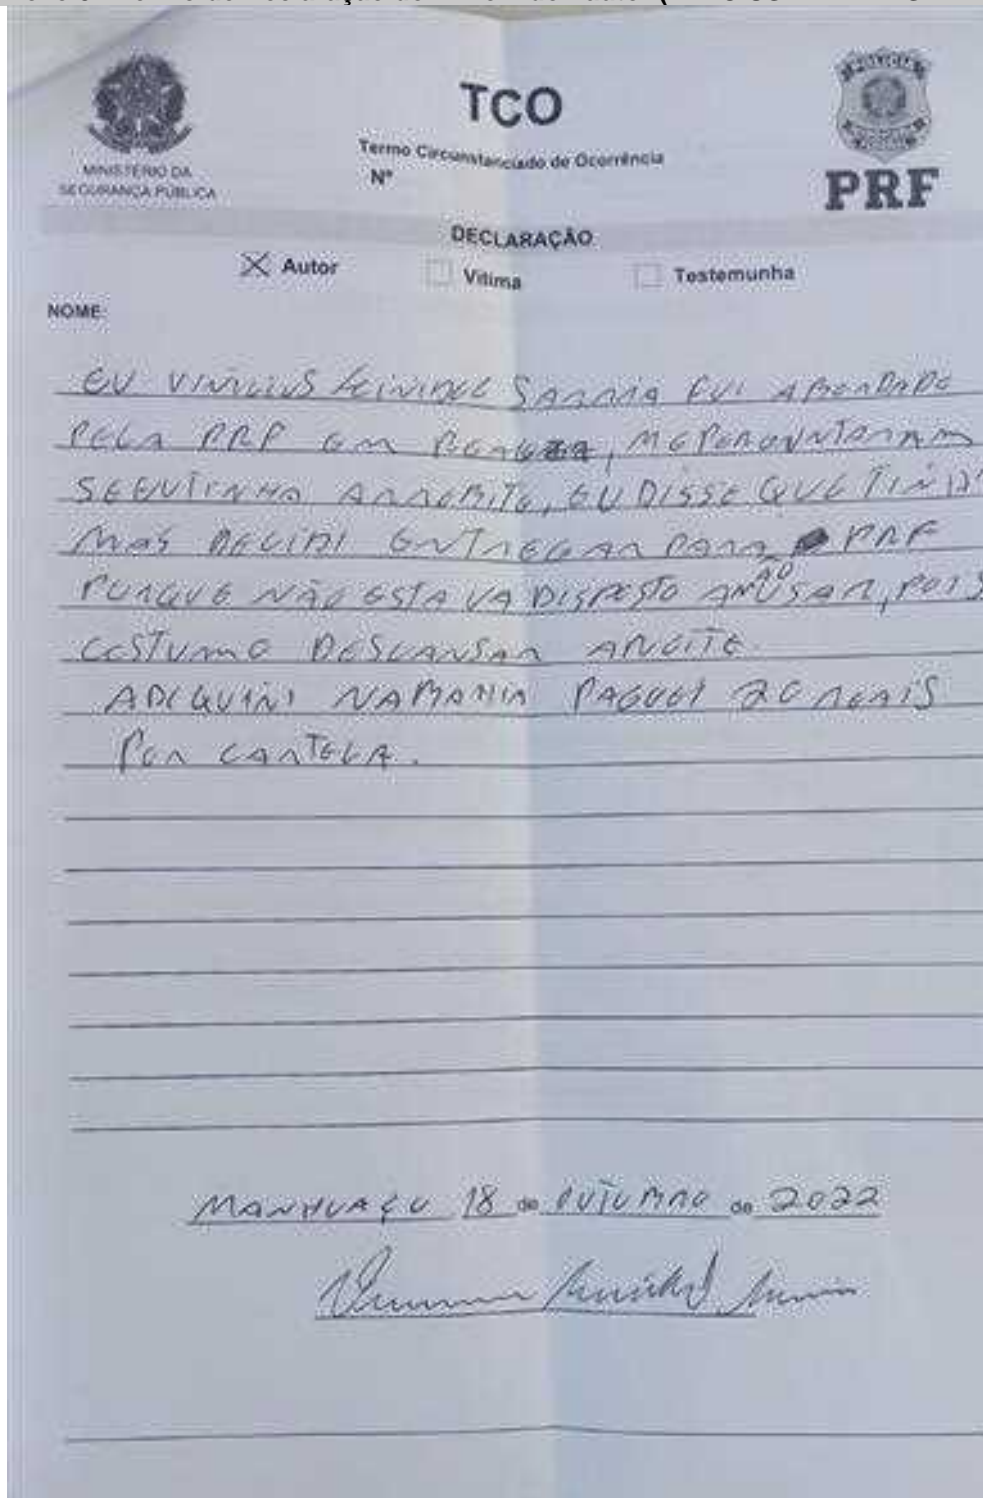 MINISTÉRIO DA
SEGURANÇA PÚBLICA
TCO
Termo Circunstanciado de Ocorrência
Nº
POLÍCIA
FEDERAL
PRF
DECLARAÇÃO
X Autor
Vítima
Testemunha
NOME:
EU VINICIUS SARRIA FUI ABORDADO
PELA PRF EM, ME PERGUNTARAM
SE EU TINHA ARREBITE, EU DISSE QUE TINHA
MAS DECIDI ENTREGAR PARA PRF
PORQUE NÃO ESTAVA DISPOSTO A USAR, POIS
COSTUMO DESCANSAR ANOITE.
ADIQUIRI NA PAGUEI 20 REAIS
POR CARTELA.
MANHUAÇU 18 de OUTUBRO de 2022